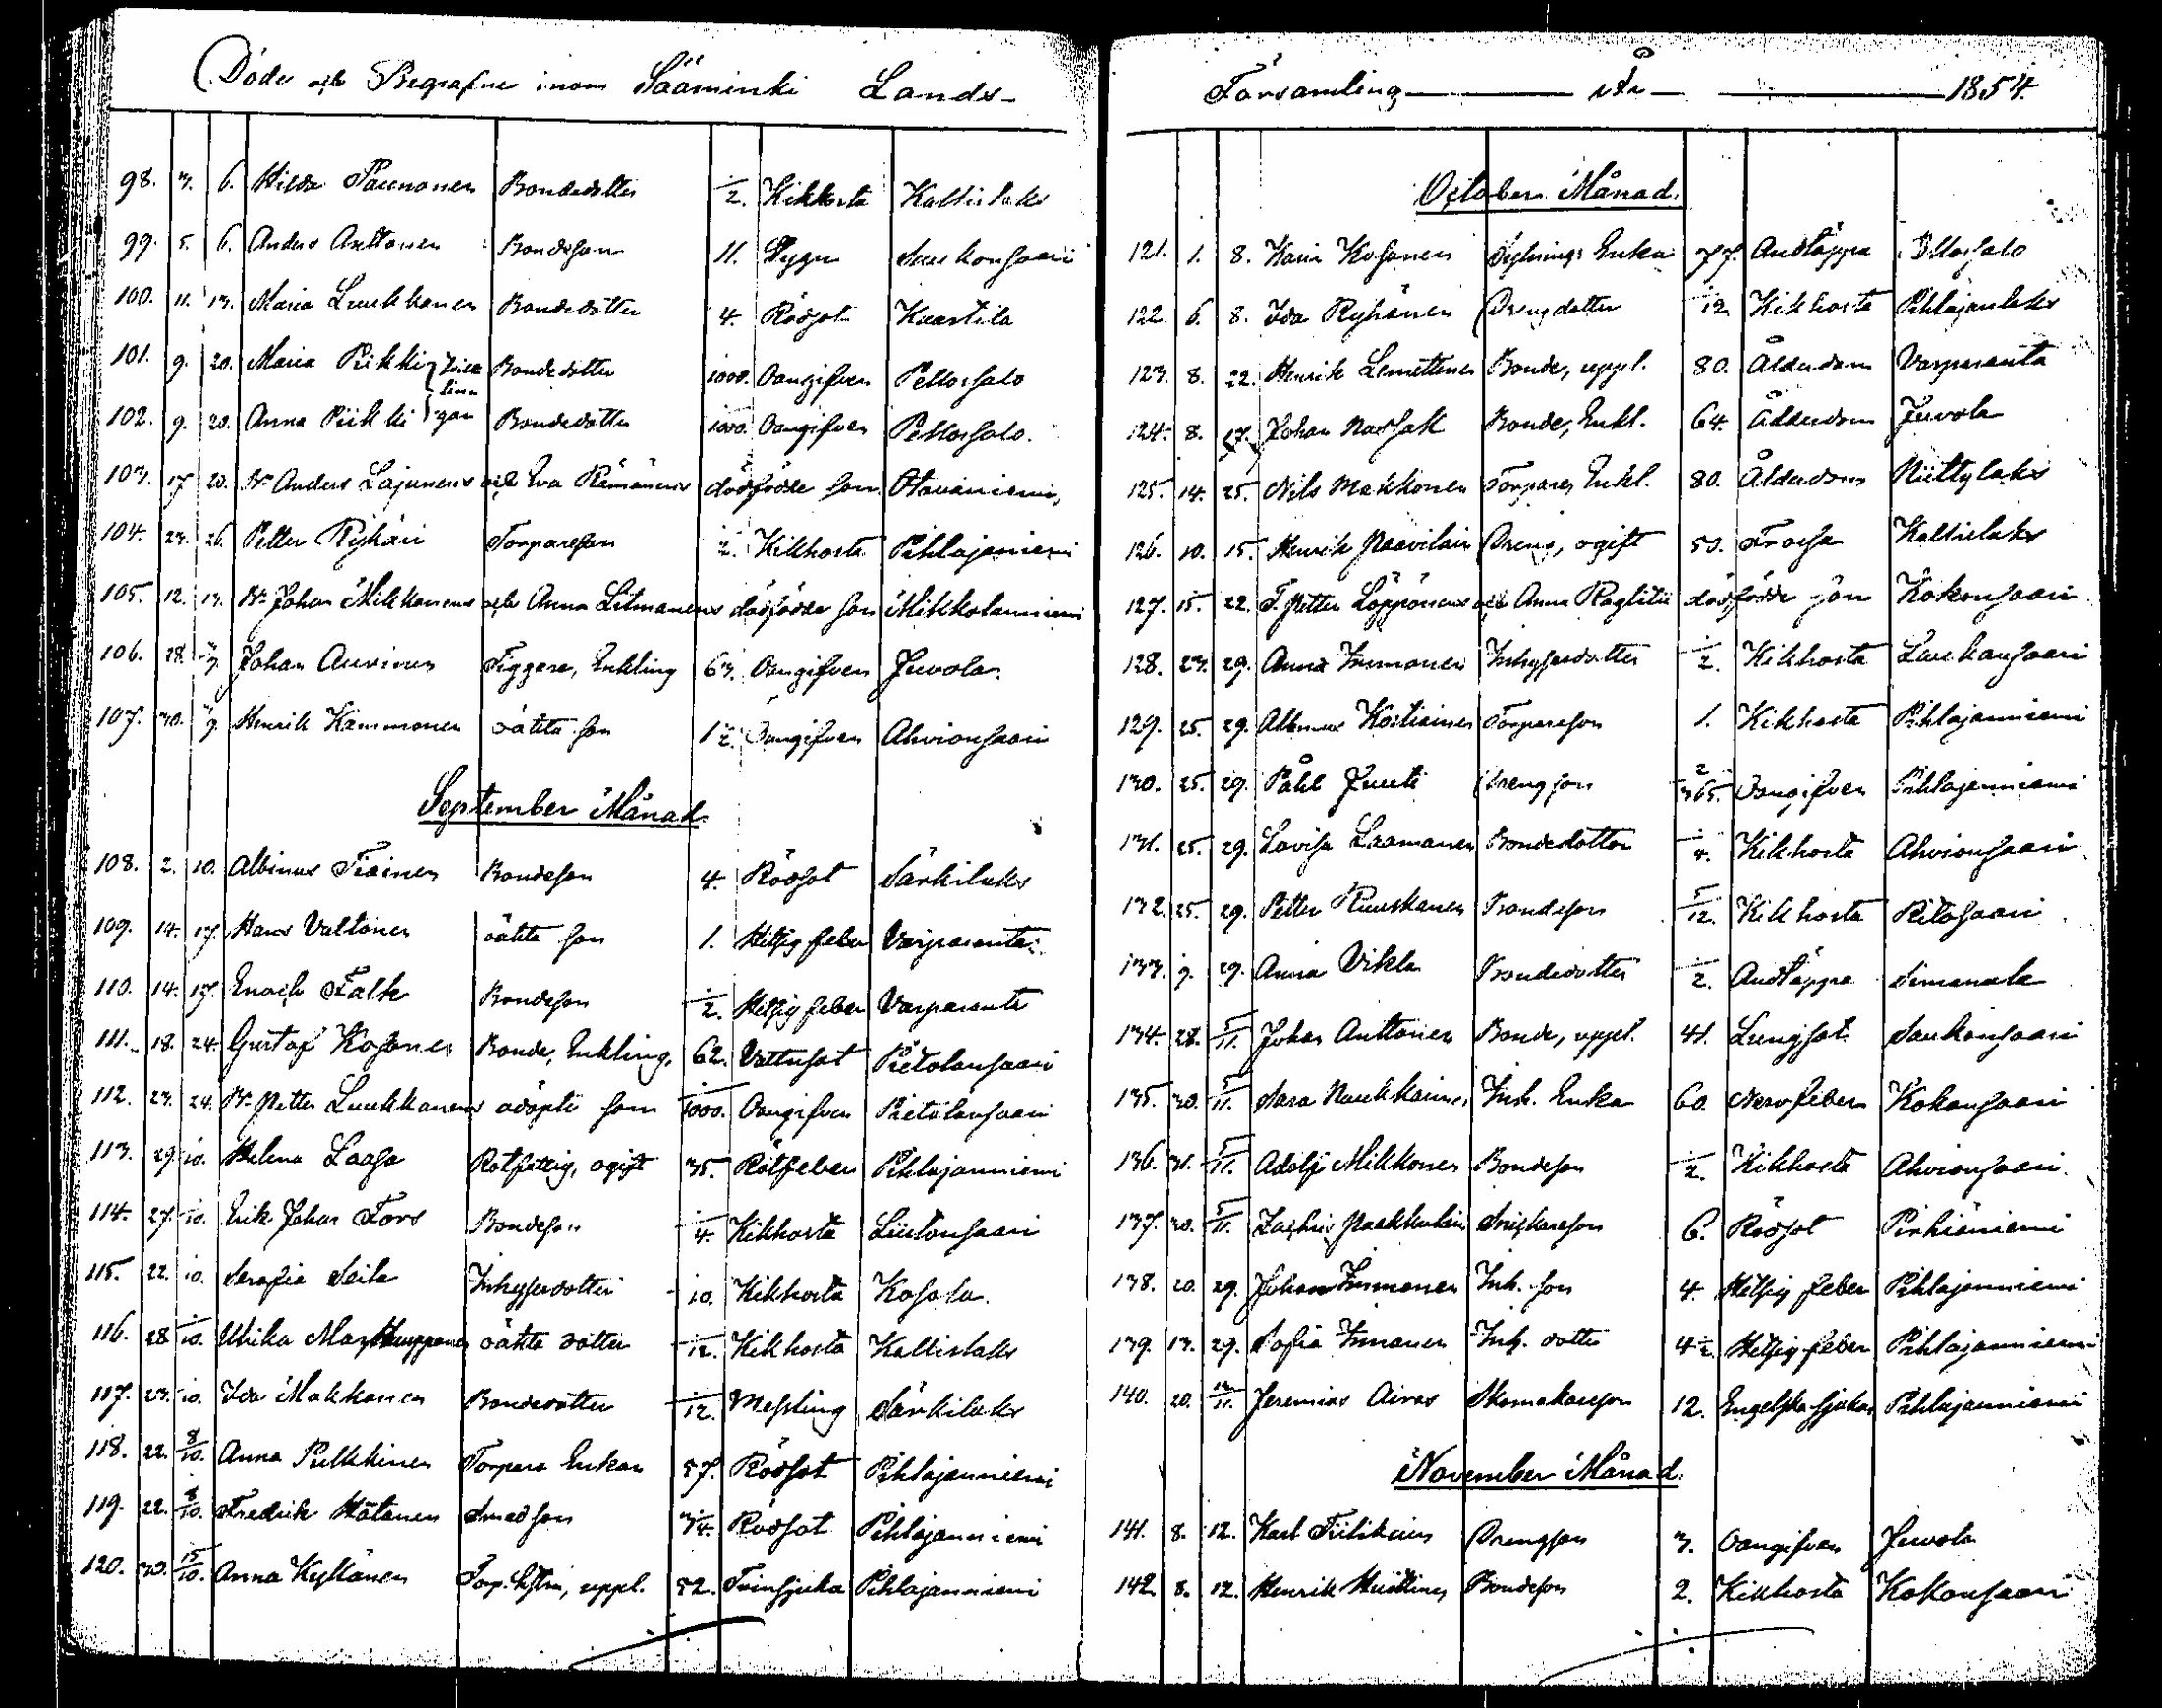 Döde och Begrafne inom Sääminki Lands-
98. 3. 6. Hilda Paunonen Bondedotter 1/2. Kikhosta Kallislaks
99. 5. 6. Anders Anttonen Bondeson 11. Saukonsaari
100. 11. 13. Maria Luukkanen Bondedotter 4. Rödsot Kaartila
101. 9. 20. Maria Piikki Bondedotter 1/1000. Oangifven Pellossalo
102. 9. 20. Anna Piikki Bondedotter 1/1000. Oangifven Pellossalo.
103. 17. 20. Bn Anders Lajunens och Eva Rämänens dödfödde son Otavaniemi,
104. 23. 26. Petter Ryhäri Torpareson 1/2. Kikhosta Pihlajaniemi
105. 12. 13. Bn Johan Mikkonens och Anna Litmanens dödfödde son Mikkolanniemi
106. 28. 3/9. Johan Auvinen Tiggare, Enkling 63. Oangifven Juvola.
107. 30. 3/9. Henrik Kämmonen oäkta son 1 1/2. Oangifven Ahvionsaari
September Månad.
108. 2. 10. Albinus Tiainen Bondeson 4. Rödsot Särkilaks
109. 14. 17. Hans Valtonen oäkta son 1. Hetsig feber Varparanta.
110. 14. 17. Enoch Falk Bondeson 1/2. Hetsig feber Varparanta
111. 18. 24. Gustaf Kosonen Bonde, Enkling, 62. Vattusot Pietolansaari
112. 23. 24. Bn Petter Luukkanens odöpte son 1/1000. Oangifven Pietolansaari
113. 29. 1/10. Helena Laasa Rotfattig, ogift 35. Rötfeber Pihlajanniemi
114. 27. 1/10. Erik Johan Fors Bondeson 1/4. Kikhosta Liistonsaari
115. 22. 1/10. Serafia Seila Inhysesdotter 1/10. Kikhosta Kosola.
116. 28. 1/10. Ulrika Kauppanen oäkta dotter 1/12. Kikhosta Kallislaks
117. 23. 1/10. Ida Makkonen Bondedotter 1/12. Messling Särkilaks
118. 22. 8/10. Anna Pulkkinen Torpare Enkan 57. Rödsot Pihlajanniemi
119. 22. 8/10. Fredrik Hätönen Smedson 3/4. Rödsot Pihlajanniemi
120. 30. 15/10. Anna Kyllänen Torp. hstru, uppl. 52. Tvinsjuka Pihlajanniemi
Församling År 1854.
October Månad.
121. 1. 8. Kaisa Kosonen Enka 77. Andtäppa Pellossalo
122. 6. 8. Ida Ryhänen Drengdotter 1/12. Kikhosta Pihlajanlaks
123. 8. 22. Henrik Lemettinen Bonde, uppl. 80. Ålderdom Varparanta
124. 8. 17. Johan Bonde, Enkl. 64. Ålderdom Juvola
125. 14. 25. Nils Makkonen Torpare, Enkl. 80. Ålderdom Niittylaks
126. 10. 15. Henrik Paavilain Dreng, ogift 50. Frossa Kallislaks
127. 15. 22. T. Petter Löppönens och Anna dödfödde son Kokonsaari
128. 23. 29. Anna Immonen Inhysesdotter 1/2. Kikhosta Laukansaari
129. 25. 29. Albinus Kostiainen Torpareson 1. Kikhosta Pihlajanniemi
130. 25. 29. Påhl Juuti Drengson 2/365. Oangifven Pihlajanniemi
131. 25. 29. Lovisa Laamanen Bondedotter 1/4. Kikhosta Ahvionsaari
132. 25. 29. Petter Ruuskanen Bondeson 5/12. Kikhosta Pitosaari
133. 9. 29. Anna Vikla Bondedotter 1/2. Andtäppa Simanala
134. 28. 5/11. Johan Anttonen Bonde, uppl. 41. Lungsot Saukonsaari
135. 30. 5/11. Sara Naukkarinen Inh. Enka 60. Nervfeber Kokonsaari
136. 31. 5/11. Adolf Mikkonen Bondeson 1/2. Kikhosta Ahvionsaari.
137. 30. 5/11. Zachris Paakkulain Snickareson 6. Rödsot Pirhiäniemi
138. 20. 29. Johan Immonen Inh. son 4. Hetsig feber Pihlajanniemi
139. 13. 29. Sofia Immonen Inh. dotter 4 1/2. Hetsig feber Pihlajanniemi
140. 20. 12/11. Jeremias Airas Skomakareson 12. Engelska sjukan Pihlajanniemi
November Månad.
141. 8. 12. Karl Tiilikain Drengson 3. Oangifven Juvola
142. 8. 12. Henrik Huittinen Bondeson 2. Kikhosta Kokonsaari